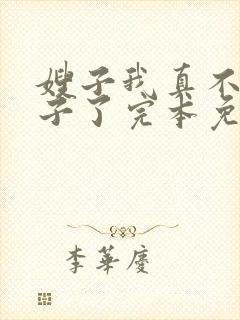 嫂子我真不
子了完本免
李華慶